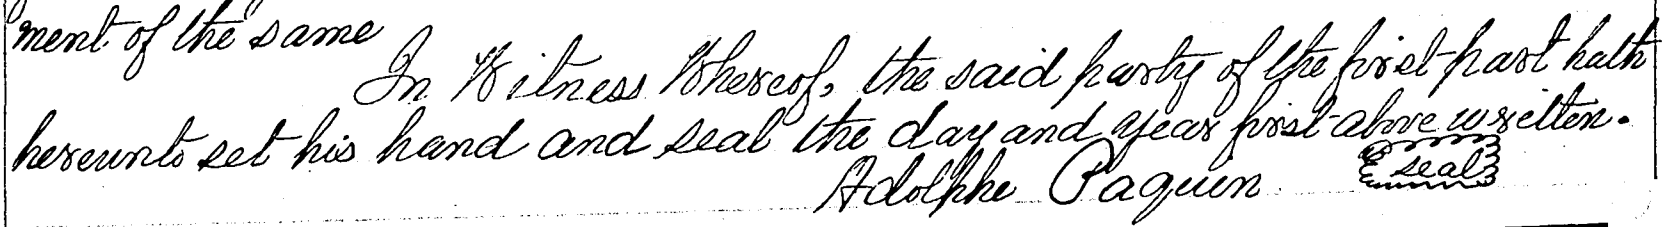 ment of the same
In Witness Whereof, the said party of the first part hath
hereunto set his hand and seal the day and year first above written.
Adolphe Paquin seal